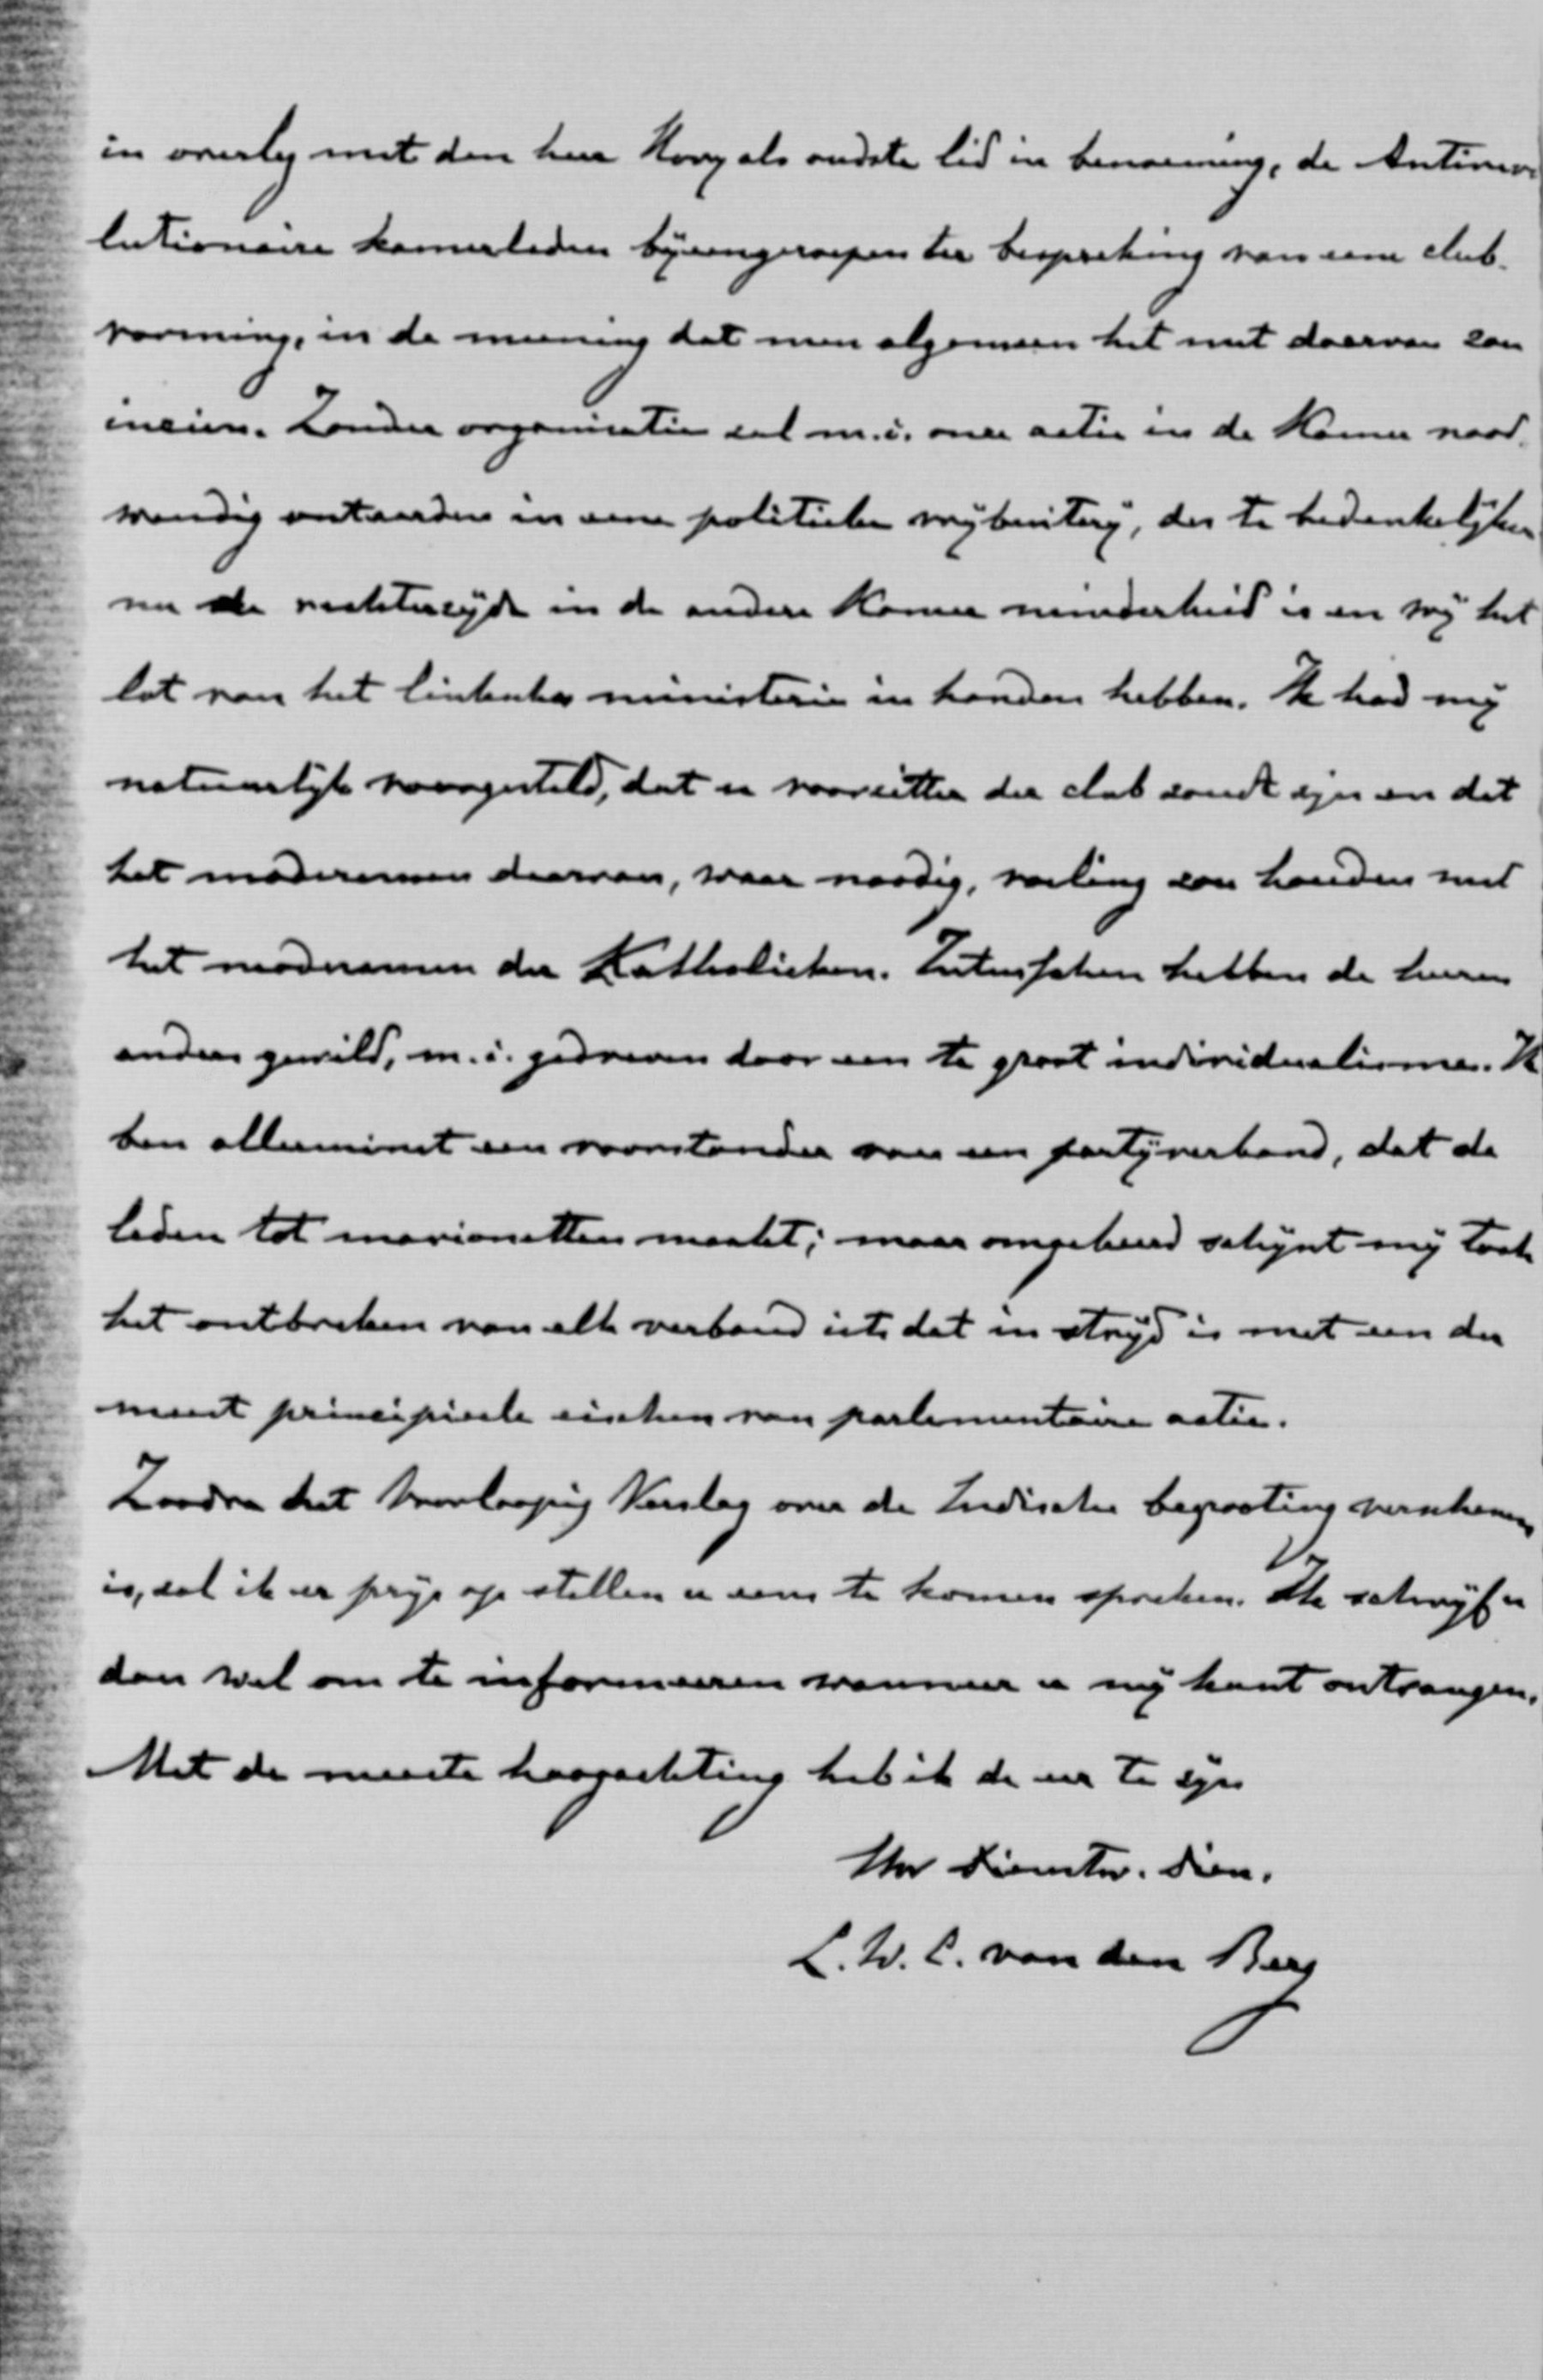 in overleg met den heer Hovy als oudste lid in benoeming, de Antirevo-
lutionaire kamerleden byeengeroepen ter bespreking van eene club-
vorming, in de meening dat men algemeen het nut daarvan zou
inzien. Zonder organisatie zal m.i. onze actie in de Kamer nood-
wendig ontaarden in eene politieke vrybuitery, des te bedenkelyker
nu de rechterzyde in de andere Kamer minderheid is en wy het
lot van het linksche ministerie in handen hebben. Ik had my
natuurlyk voorgesteld, dat u voorzitter der club zoudt zyn en dat
het moderamen daarvan, waar noodig, voeling zou houden met
het moderamen der Katholieken. Intusschen hebben de heeren
anders gewild, m.i. gedreven door een te groot individualisme. Ik
ben allerminst een voorstander van een partyverband, dat de
leden tot marionetten maakt; maar omgekeerd schynt my toch
het ontbreken van elk verband iets dat in stryd is met een der
meest principieele eischen van parlementaire actie.
Zoodra het Voorloopig Verslag over de Indische begrooting verschenen
is, zal ik er prys op stellen u eens te komen spreken. Ik schryf u
dan wel om te informeeren wanneer u my kunt ontvangen.
Met de meeste hoogachting heb ik de eer te zyn
Uw dienstw. dien.
L. W. C. van den Berg